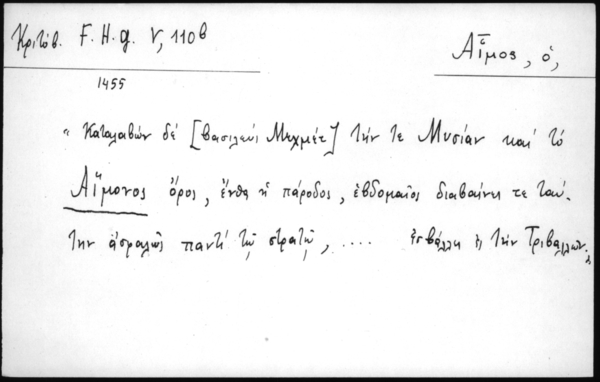 Κριτόβ. F. H. g. V, 110b
Αἷμος, ὁ,
1455
"Καταλαβὼν δὲ [βασιλεὺς Μεχμέτ] τήν τε Μυσίαν καὶ τὸ
Αἵμονος ὄρος, ἔνθα ἡ πάροδος, ἑβδομαῖος διαβαίνει τε ταύ-
την ἀσφαλῶς παντὶ τῷ στρατῷ, .... ἐσβάλλει ἐς τὴν Τριβαλλῶν.